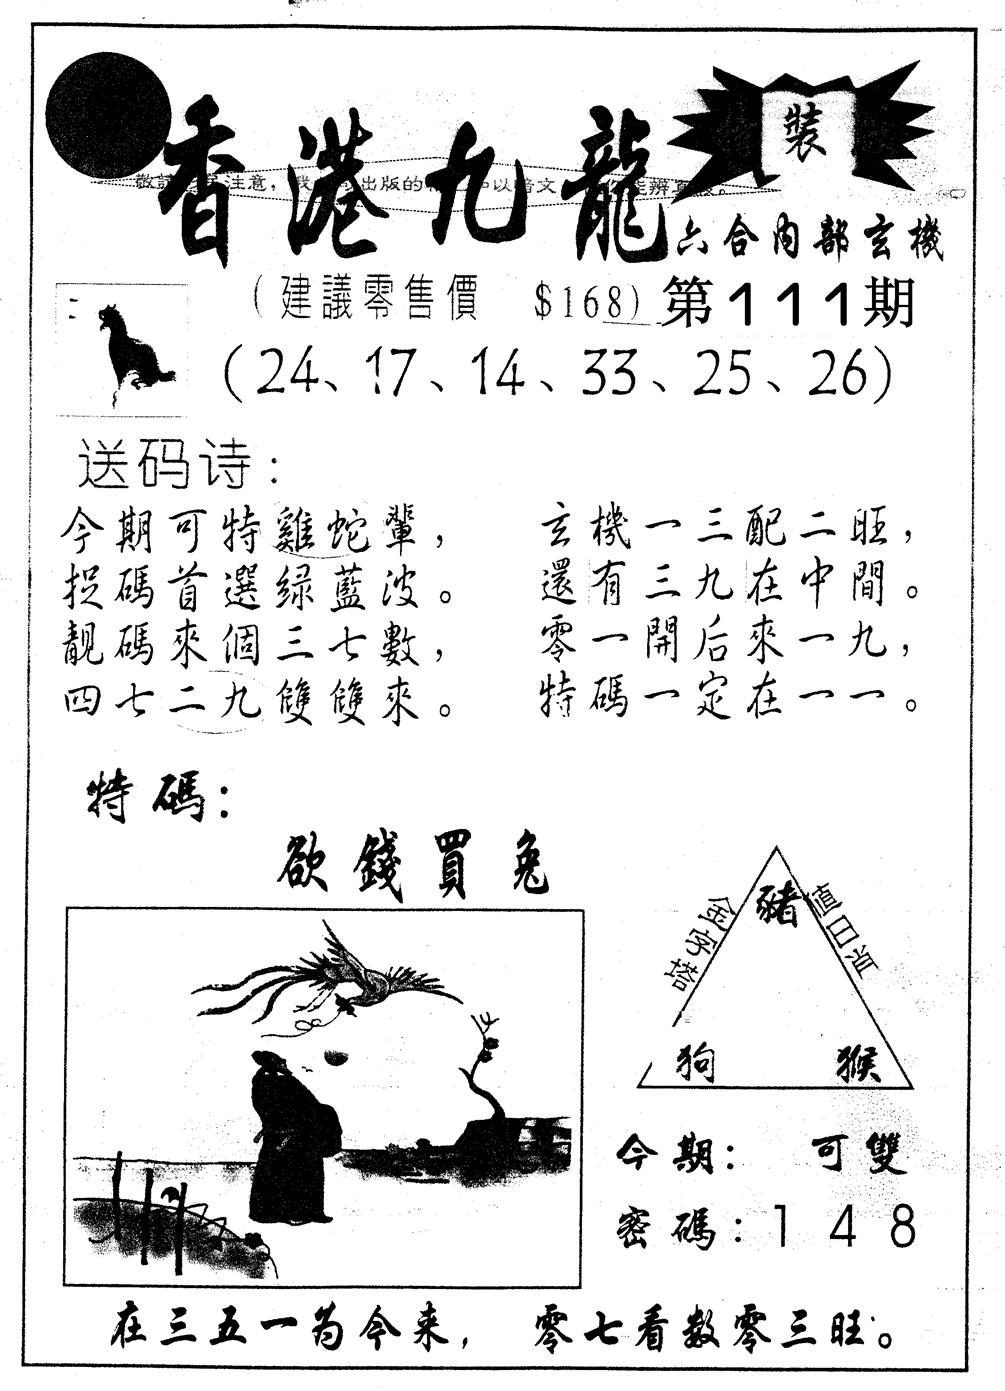 裝
香港九龍
敬請 注意， 出版的 以暗文 能辨真
六合内部玄機
（建議零售價 $168）第111期
（24、17、14、33、25、26）
送码诗：
今期可特雞蛇輩，
捉碼首選绿藍波。
靚碼來個三七數，
四七二九雙雙來。
玄機一三配二旺，
還有三九在中間。
零一開后來一九，
特碼一定在一一。
特碼：
欲錢買兔
金字塔
豬
值日肖
狗 猴
今期： 可雙
密碼：148
在三五一为今来， 零七看数零三旺。